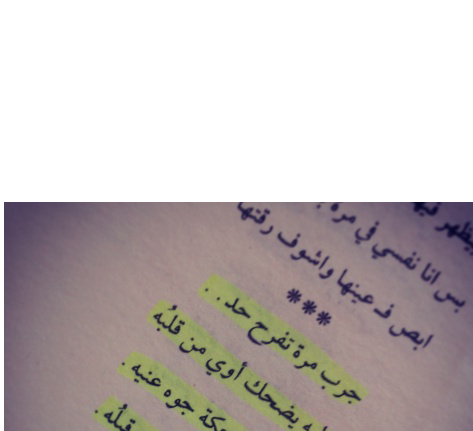 يظهر
بس انا نفسي في مرة
ابص فـ عينها واشوف رقتها
***
جرب مرة تفرح حد ..
يضحك أوي من قلبُه
جوه عنيه .
قلُه .